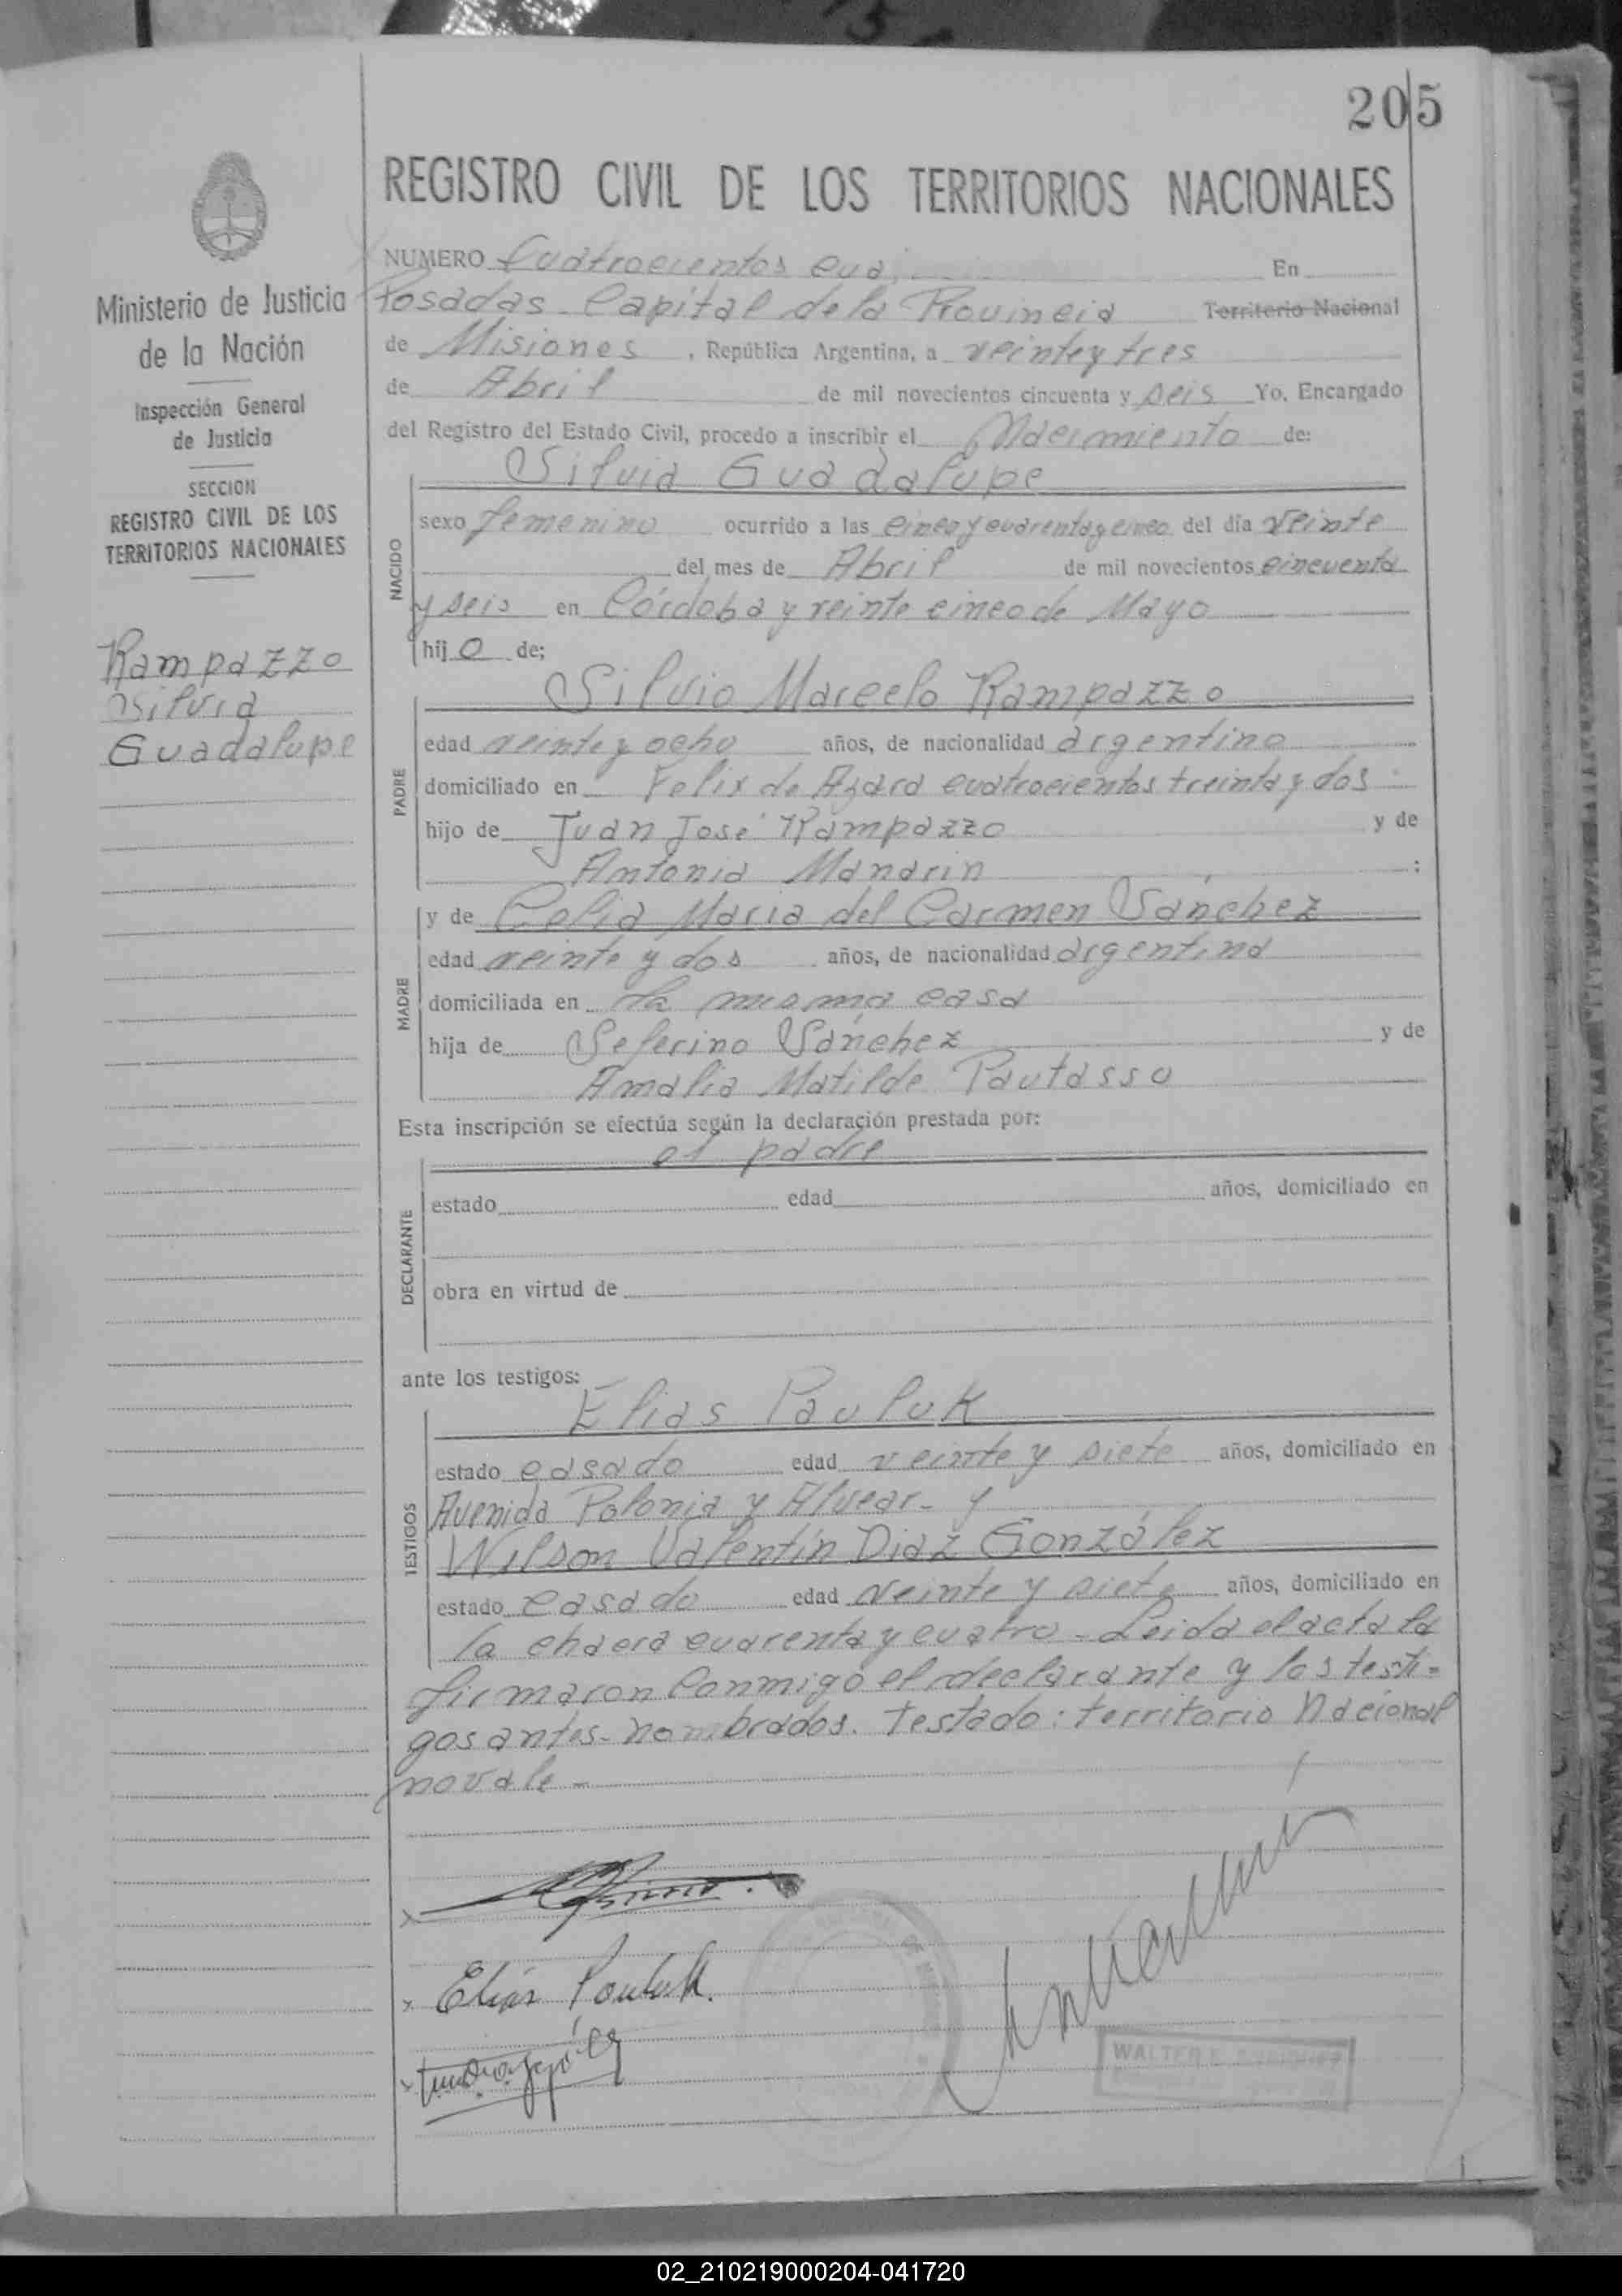 205
REGISTRO CIVIL DE LOS TERRITORIOS NACIONALES
NUMERO Cuatrocientos En
Posadas Capital de la Provincia Territorio Nacional
de Misiones, República Argentina, a veinte y tres
de Abril de mil novecientos cincuenta y seis Yo, Encargado
del Registro del Estado Civil, procedo a inscribir el Nacimiento de:
Silvia Guadalupe
NACIDO
sexo femenino ocurrido a las cinco y cuarenta y cinco del día veinte
del mes de Abril de mil novecientos cincuenta
y seis en Córdoba y veinte cinco de Mayo
hij a de;
Silvio Marcelo Rampazzo
PADRE
edad veinte y ocho años, de nacionalidad argentino
domiciliado en Felix de Azara cuatrocientos treinta y dos
hijo de Juan José Rampazzo y de
Antonia Manarin ;
MADRE
y de Celia María del Carmen Sánchez
edad veinte y dos años, de nacionalidad argentina
domiciliada en la misma casa
hija de Seferino Sánchez y de
Amalia Matilde Pautasso
Esta inscripción se efectúa según la declaración prestada por:
el padre
DECLARANTE
estado edad años, domiciliado en
obra en virtud de
ante los testigos:
Elias Pauluk
TESTIGOS
estado casado edad veinte y siete años, domiciliado en
Avenida Polonia y Alvear- y
Wilson Valentín Diaz González
estado casado edad veinte y siete años, domiciliado en
la chacra cuarenta y cuatro - Leida el acta la
firmaron conmigo el declarante y los testi=
gos antes-nombrados. Testado: territorio Nacional
no vale -
Elias Pauluk.
WALTER E.
Ministerio de Justicia
de la Nación
Inspección General
de Justicia
SECCION
REGISTRO CIVIL DE LOS
TERRITORIOS NACIONALES
Rampazzo
Silvia
Guadalupe
02_210219000204-041720